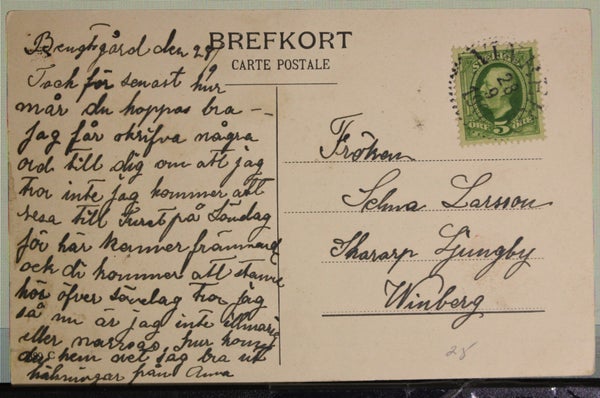 Bengtsgård den 28/9
BREFKORT
CARTE POSTALE
Tack för senast hur
mår du hoppas bra —
Jag får skrifva några
ord till dig om att jag
tror inte jag kommer att
resa till på Söndag
för här kommer främmand
ock di kommer att stanna
här öfver söndag tror jag
så nu är jag inte
eller hur kom
hem det jag bra ut
hälsningar från Anna
28
9
5 ÖRE
Fröken
Selma Larsson
Skararp Ljungby
Winberg
25